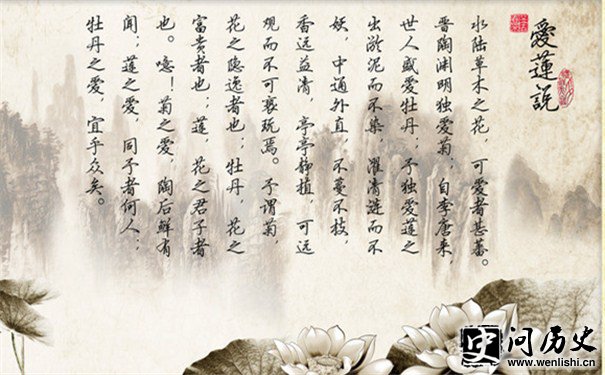 愛蓮說
水陆草木之花，可爱者甚蕃。
晋陶渊明独爱菊；自李唐来
世人盛爱牡丹；予独爱莲之
出淤泥而不染，濯清涟而不
妖，中通外直，不蔓不枝，
香远益清，亭亭静植，可远
观而不可亵玩焉。予谓菊，
花之隐逸者也；牡丹，花之
富贵者也；莲，花之君子者
也。噫！菊之爱，陶后鲜有
闻；莲之爱，同予者何人；
牡丹之爱，宜乎众矣。
史 问历史
www.wenlishi.cn